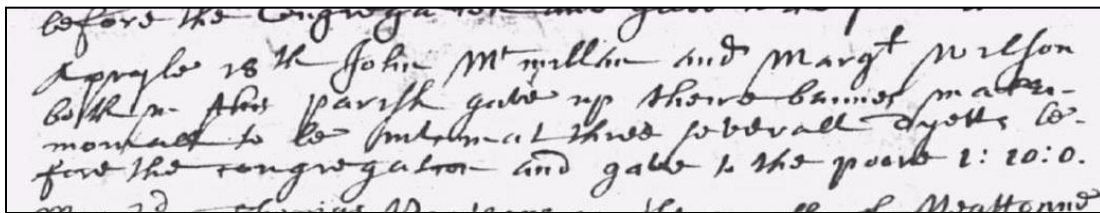 before the Congrega and gave to the
Apryle 18th John Mcmillan and Margt Wilson
both in this parish gave up theire bannes matri-
moniall to be intimat three severall dyetts be-
fore the congregation and gave to the poore 1: 10: 0.